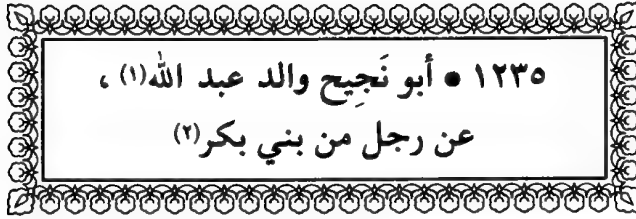 ١٢٣٥ • أبو نَجِيح والد عبد الله(١) ،
عن رجل من بني بكر(٢)